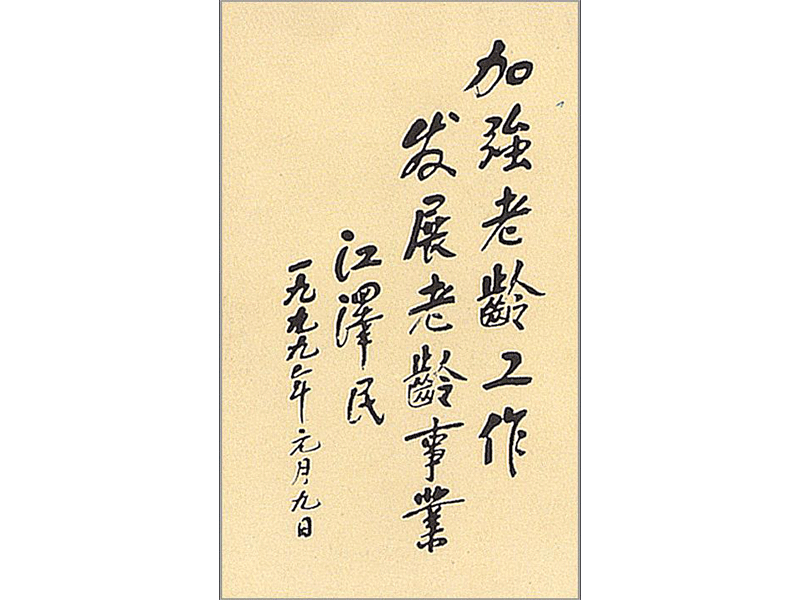 加強老齡工作
发展老齡事業
江澤民
一九九九年元月九日